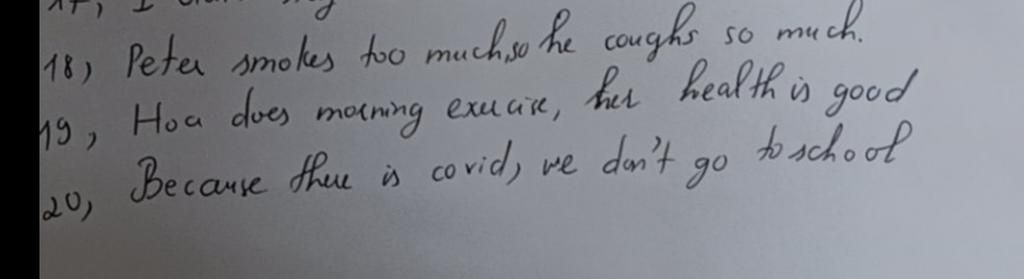 18) Peter smokes too much, so he coughs so much.
19, Hoa does morning exercise, her health is good
20, Because there is covid, we don't go to school